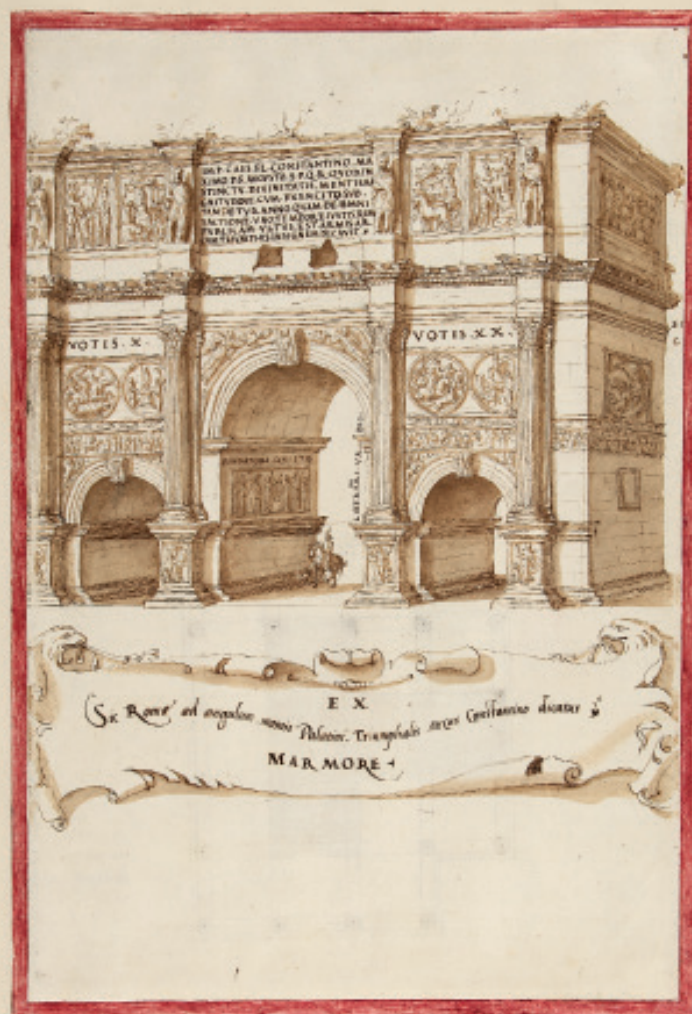 IMP·CAES·FL·CONSTANTINO·MA
XIMO·P·F· S·P·Q·R·QVOD IN
STINCTV DIVINITATIS MENTIS MA
GNITVDINE·CVM·
TAM DE TYR ANNO QVAM·DE·OMNI
VNO TEMPORE IVSTIS REM
PVBLICAM VLTVS EST ARMIS AR
INSIGNEM DICAVIT
VOTIS·X·
VOTIS·XX·
EX
Sic Romæ ad angulum montis Palatini Triumphalis arcus Constantino dicatus
MARMORE